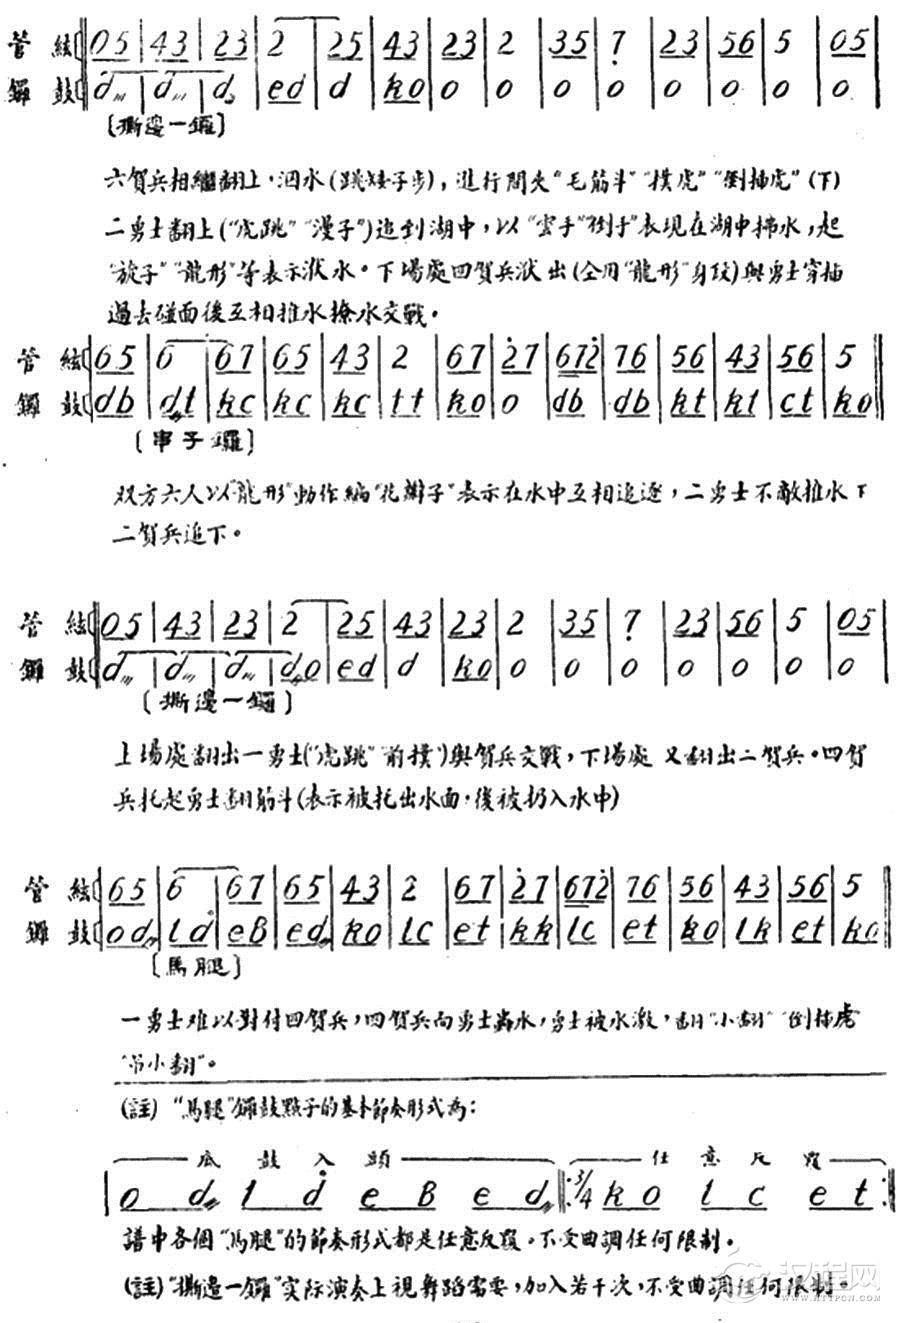 管 絃 05 | 43 | 23 | 2 | 25 | 43 | 23 | 2 | 35 | 7̣ | 23 | 56 | 5 | 05
鑼 鼓 d | d | d | ed | d | ko | o | o | o | o | o | o | o | o
〔撕邊一鑼〕
六賀兵相繼翻上，泗水(跳矮子步)，進行間夾“毛筋斗”“撲虎”“倒插虎”(下)
二勇士翻上(“虎跳”“漫子”)追到湖中，以“雲手”“倒手”表現在湖中拂水，起
“旋子”“龍形”等表示洑水。下場處四賀兵洑出(全用“龍形”身段)與勇士穿插
過去碰面後互相推水撩水交戰。
管 絃 65 | 6 | 67 | 65 | 43 | 2 | 67 | 2̇7 | 672̇ | 76 | 56 | 43 | 56 | 5
鑼 鼓 db | dt | kc | kc | kc | tt | ko | o | db | db | kt | kt | ct | ko
〔串子鑼〕
双方六人以“龍形”動作編“花辮子”表示在水中互相追逐，二勇士不敵推水下
二賀兵追下。
管 絃 05 | 43 | 23 | 2 | 25 | 43 | 23 | 2 | 35 | 7̣ | 23 | 56 | 5 | 05
鑼 鼓 d | d | d | do | ed | d | ko | o | o | o | o | o | o | o
〔撕邊一鑼〕
上場處翻出一勇士(“虎跳”“前撲”)與賀兵交戰，下場處又翻出二賀兵。四賀
兵托起勇士翻筋斗(表示被托出水面，後被扔入水中)
管 絃 65 | 6 | 67 | 65 | 43 | 2 | 67 | 2̇7 | 672̇ | 76 | 56 | 43 | 56 | 5
鑼 鼓 od | ld | eB | ed | ko | lc | et | kk | lc | et | ko | lk | et | ko
〔馬腿〕
一勇士难以對付四賀兵，四賀兵向勇士 水，勇士被水激，翻“小翻”“倒插虎”
“吊小翻”。
(註) “馬腿”鑼鼓點子的基本節奏形式為：
底鼓入頭 任意反覆
o d l d e B e d 3/4 k o l c e t
譜中各個“馬腿”的節奏形式都是任意反覆，不受曲調任何限制。
(註)“撕邊一鑼”实际演奏上視舞蹈需要，加入若干次，不受曲調任何限制。
汉程网
WWW.HTTPCN.COM